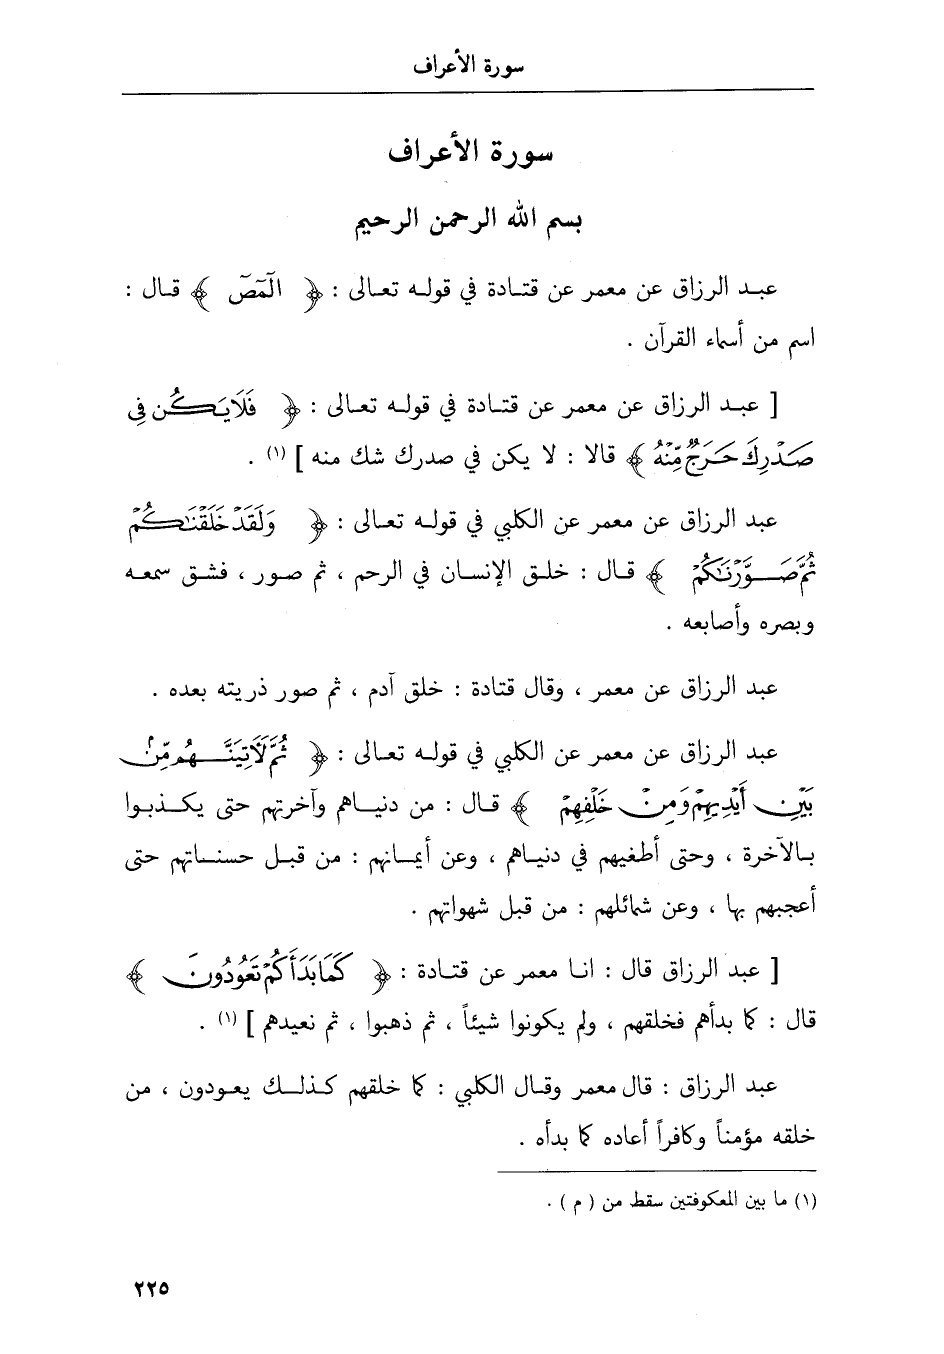 سورة الأعراف
سورة الأعراف
بسم الله الرحمن الرحيم
عبد الرزاق عن معمر عن قتادة في قوله تعالى : ﴿ الٓمٓصٓ ﴾ قال :
اسم من أسماء القرآن .
[ عبد الرزاق عن معمر عن قتادة في قوله تعالى : ﴿ فَلَا يَكُن فِي
صَدْرِكَ حَرَجٌ مِّنْهُ ﴾ قالا : لا يكن في صدرك شك منه ] (١) .
عبد الرزاق عن معمر عن الكلبي في قوله تعالى : ﴿ وَلَقَدْ خَلَقْنَاكُمْ
ثُمَّ صَوَّرْنَاكُمْ ﴾ قال : خلق الإنسان في الرحم ، ثم صور ، فشق سمعه
وبصره وأصابعه .
عبد الرزاق عن معمر ، وقال قتادة : خلق آدم ، ثم صور ذريته بعده .
عبد الرزاق عن معمر عن الكلبي في قوله تعالى : ﴿ ثُمَّ لَآتِيَنَّهُم مِّنْ
بَيْنِ أَيْدِيهِمْ وَمِنْ خَلْفِهِمْ ﴾ قال : من دنياهم وآخرتهم حتى يكذبوا
بالآخرة ، وحتى أطغيهم في دنياهم ، وعن أيمانهم : من قبل حسناتهم حتى
أعجبهم بها ، وعن شمائلهم : من قبل شهواتهم .
[ عبد الرزاق قال : انا معمر عن قتادة : ﴿ كَمَا بَدَأَكُمْ تَعُودُونَ ﴾
قال : كما بدأهم فخلقهم ، ولم يكونوا شيئاً ، ثم ذهبوا ، ثم نعيدهم ] (١) .
عبد الرزاق : قال معمر وقال الكلبي : كما خلقهم كذلك يعودون ، من
خلقه مؤمناً وكافراً أعاده كما بدأه .
(١) ما بين المعكوفتين سقط من ( م ) .
٢٢٥